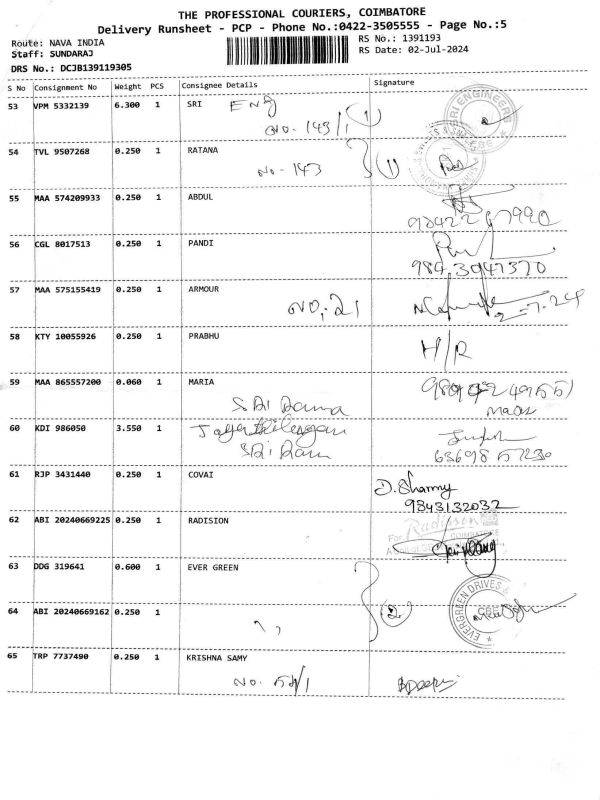 THE PROFESSIONAL COURIERS, COIMBATORE
Delivery Runsheet - PCP - Phone No.:0422-3505555 - Page No.:5
Route: NAVA INDIA
RS No.: 1391193
Staff: SUNDARAJ
RS Date: 02-Jul-2024
DRS No.: DCJB139119305
S No Consignment No Weight PCS Consignee Details Signature
53 VPM 5332139 6.300 1 SRI Eng
No. 143/1 (1)
54 TVL 9507268 0.250 1 RATANA
No. 143 (1)
55 MAA 574209933 0.250 1 ABDUL
98422 67990
56 CGL 8017513 0.250 1 PANDI
984 3947370
57 MAA 575155419 0.250 1 ARMOUR
No. 21
2-7-24
58 KTY 10055926 0.250 1 PRABHU
H/R
59 MAA 865557200 0.060 1 MARIA
Sri Rama
60 KDI 986050 3.550 1
Sri Ram
63698 57230
61 RJP 3431440 0.250 1 COVAI
D. Sharmy
9343132032
62 ABI 20240669225 0.250 1 RADISION
For Radisson
63 DDG 319641 0.600 1 EVER GREEN
EVERGREEN DRIVES &
CBE
64 ABI 20240669162 0.250 1
(2)
65 TRP 7737490 0.250 1 KRISHNA SAMY
No. 54/1